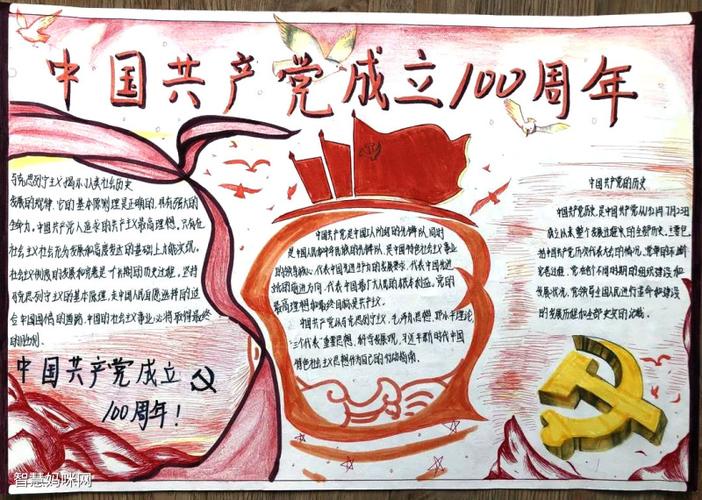 中国共产党成立100周年
马克思列宁主义揭示了人类社会历史
发展的规律，它的基本原理是正确的，具有强大的
生命力。中国共产党人追求的共产主义最高理想，只有在
社会主义社会充分发展和高度发达的基础上才能实现。
社会主义制度的发展和完善是一个长期的历史过程。坚持
马克思列宁主义的基本原理，走中国人民自愿选择的适
合中国国情的道路，中国的社会主义事业必将取得最终
的胜利。
中国共产党成立
100周年！
中国共产党是中国工人阶级的先锋队，同时
是中国人民和中华民族的先锋队，是中国特色社会主义事业
的领导核心，代表中国先进生产力的发展要求，代表中国先进
文化的前进方向，代表中国最广大人民的根本利益。党的
最高理想和最终目标是共产主义。
中国共产党以马克思列宁主义、毛泽东思想、邓小平理论、
“三个代表”重要思想、科学发展观、习近平新时代中国
特色社会主义思想作为自己的行动指南。
中国共产党的历史
中国共产党历史，是中国共产党从1921年7月23日
成立以来整个发展过程的全部历史。主要包
括中国共产党历次代表大会的情况，党章的不断
完善过程，党在各个不同时期的组织建设和
发展状况，党领导全国人民进行革命和建设
的发展历程和全部史实的记载。
智慧妈咪网